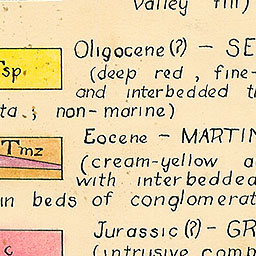 valley fill)
Oligocene(?) — SE
Tsp
(deep red, fine-
and interbedded t
ta.; non-marine)
Eocene — MARTIN
Tmz
(cream-yellow a
with interbedded
in beds of conglomerat
Jurassic(?) — GR
(intrusive comp